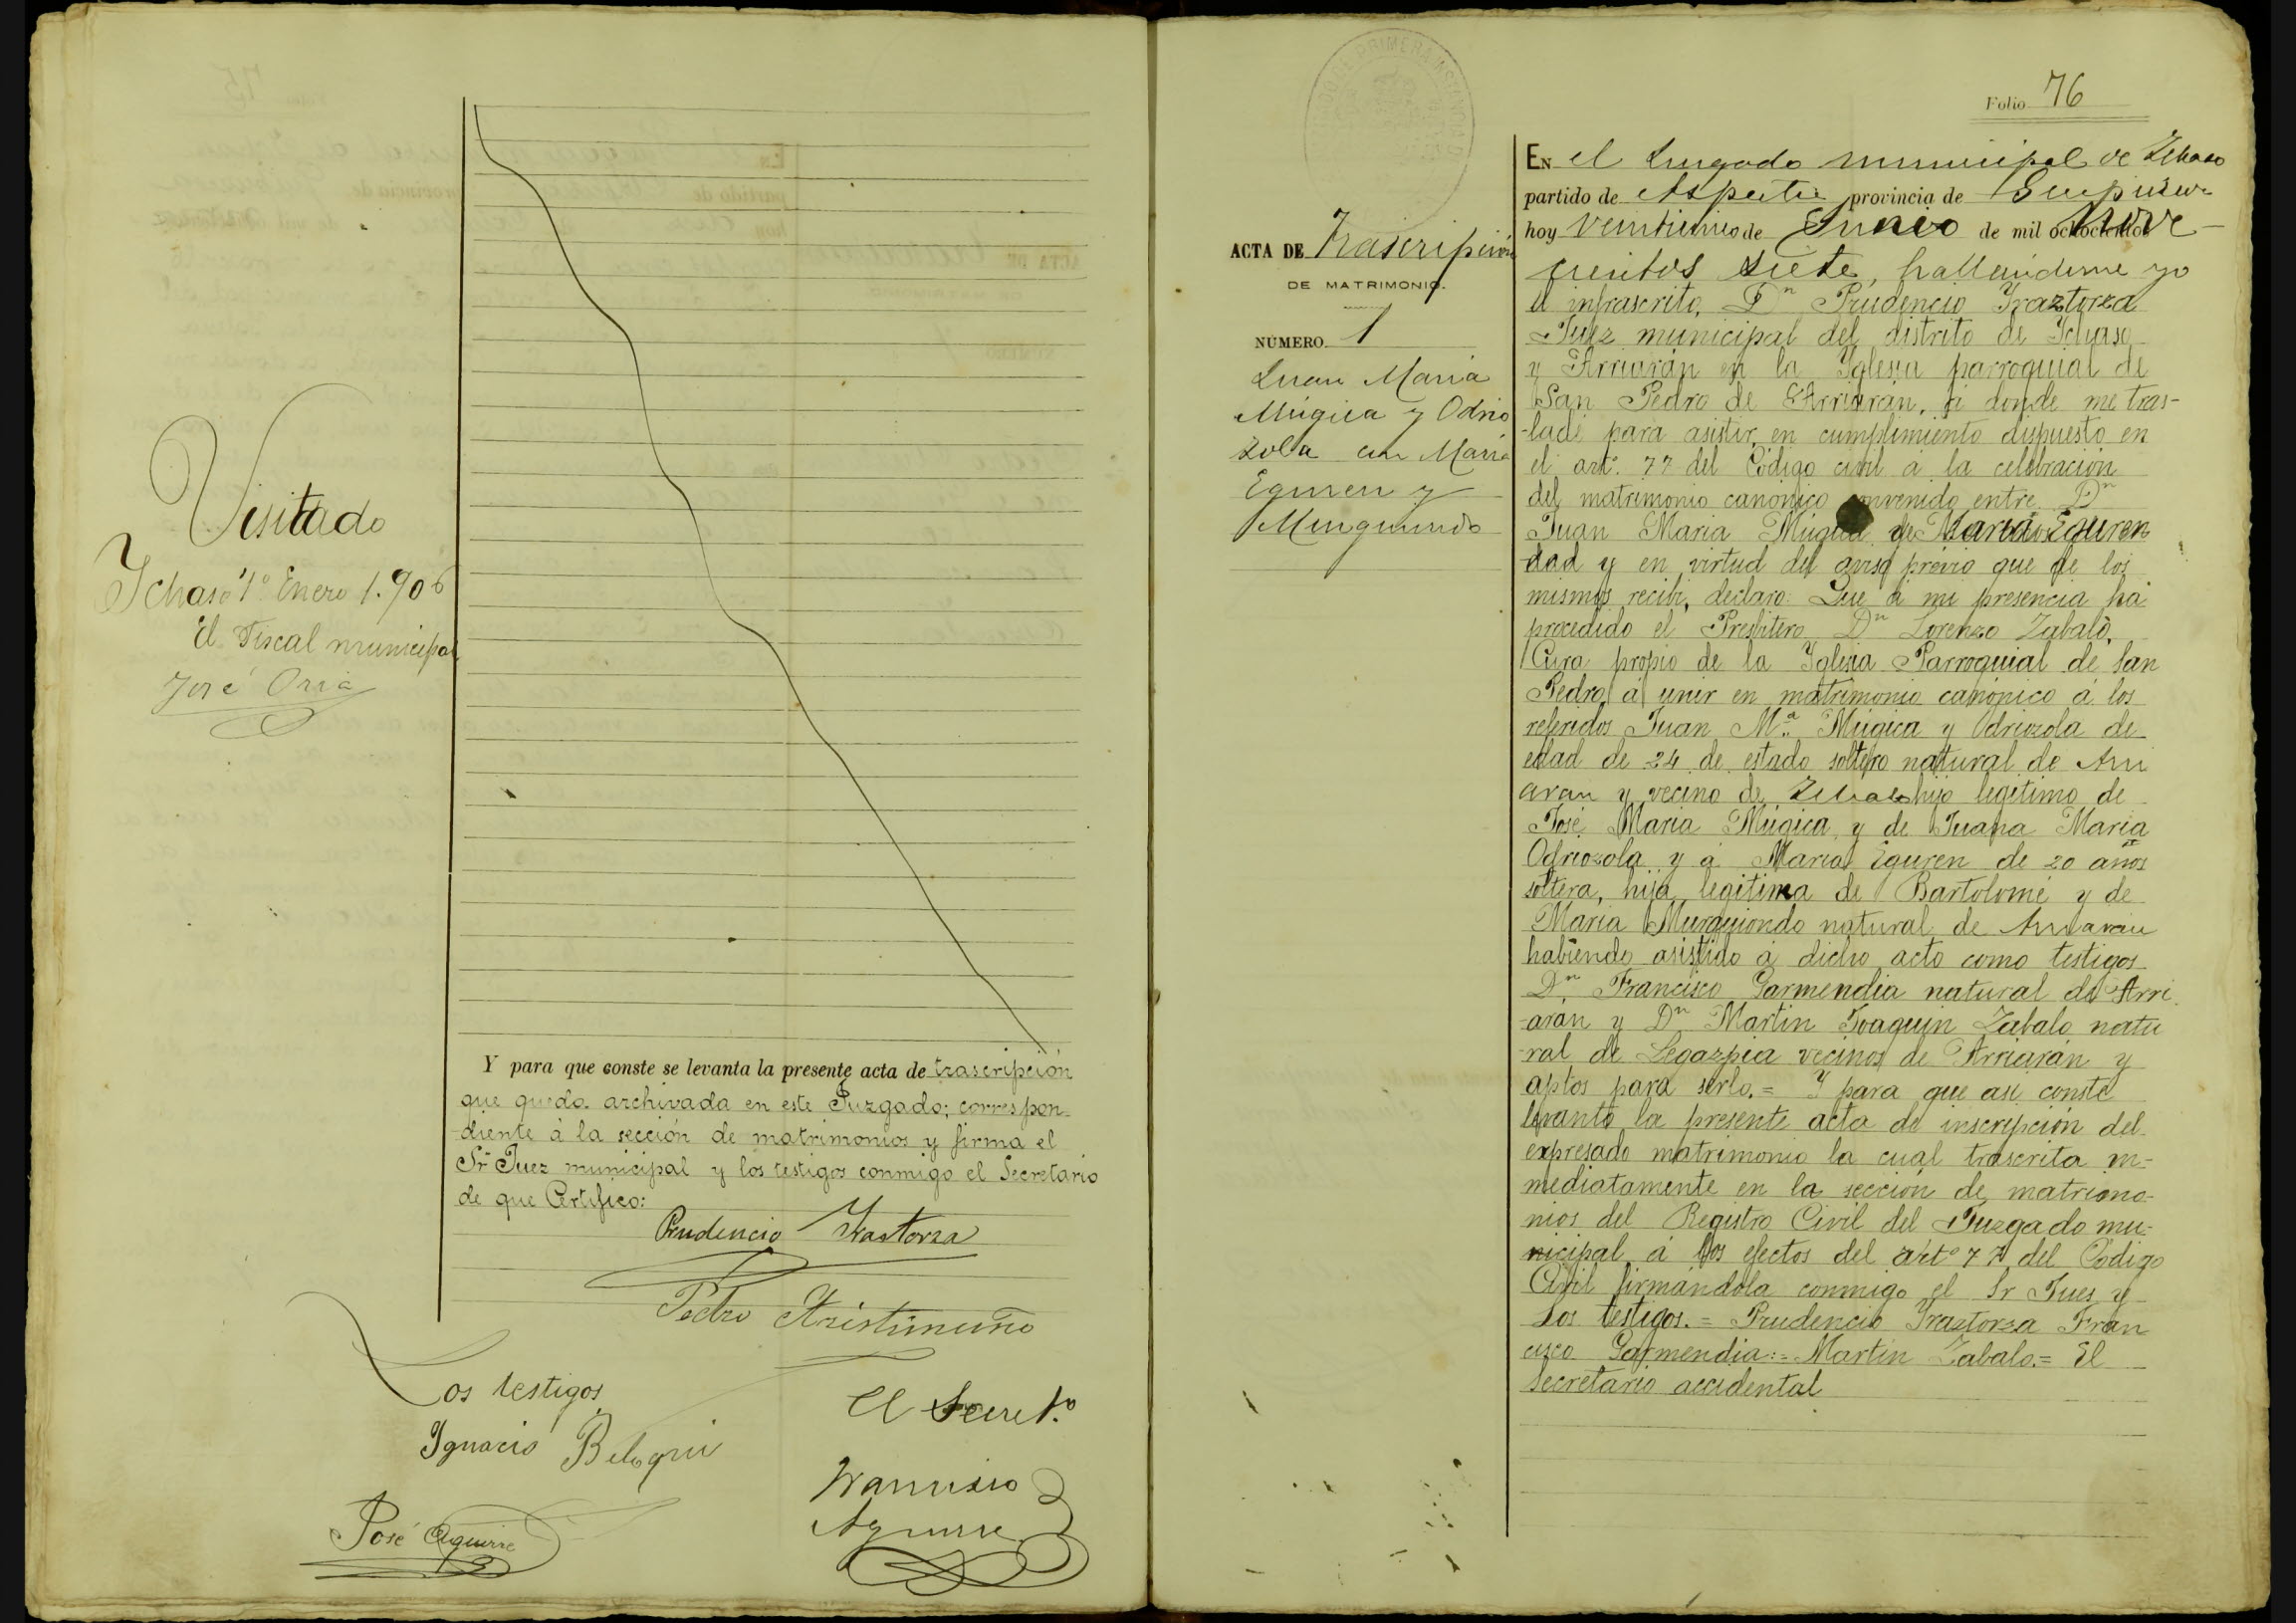 Visitado
Ichaso 1º Enero 1.906
El Fiscal municipal
José Oria
Y para que conste se levanta la presente acta de trascripción
que queda archivada en este Juzgado; correspon-
diente á la sección de matrimonios y firma el
Sr Juez municipal y los testigos conmigo el Secretario
de que Certifico:
Prudencio Iraztorza
Pedro Aristimuño
Los testigos
Ignacio Beloqui
José Aguirre
El Secret.º
Francisco
Aguirre
Folio 76
ACTA DE Trascripción
DE MATRIMONIO.
NÚMERO 1
Juan Maria
Múgica y Odrio
zola con Maria
Eguren y
Murguiondo
EN el Juzgado municipal de Ichaso
partido de Azpeitia provincia de Guipúzcoa
hoy veintiuno de Junio de mil ochocientos nove-
cientos siete, hallándome yo
el infrascrito, Dn Prudencio Iraztorza
Juez municipal del distrito de Ichaso
y Arriarán en la Iglesia parroquial de
San Pedro de Arriarán, á donde me tras-
-ladé para asistir, en cumplimiento dispuesto en
el artº. 77 del Código civil á la celebración
del matrimonio canónico convenido entre Dn
Juan Maria Múgica y Maria Eguren
dad y en virtud del aviso prévio que de los
mismos recibí, declaro: Que á mi presencia há
procedido el Presbitero Dn Lorenzo Zabalo,
Cura propio de la Iglesia Parroquial de San
Pedro á unir en matrimonio canónico á los
referidos Juan Mª Múgica y Odriozola de
edad de 24 de estado soltero natural de Arri
arán y vecino de Ichaso hijo legitimo de
José Maria Múgica y de Juana Maria
Odriozola y á Maria Eguren de 20 años
soltera, hija legitima de Bartolomé y de
Maria Murguiondo natural de Arriaran
habiendo asistido á dicho acto como testigos
Dn Francisco Garmendia natural de Arri
-aran y Dn Martin Joaquin Zabalo natu
-ral de Legazpia vecinos de Arriarán y
aptos para serlo.= Y para que asi conste
levanto la presente acta de inscripción del
expresado matrimonio la cual trascrita in-
mediatamente en la sección de matrimo-
nios del Registro Civil del Juzgado mu-
nicipal á los efectos del artº 77 del Código
Civil firmándola conmigo el Sr Juez y
los testigos.= Prudencio Iraztorza Fran
cisco Garmendia:= Martin Zabalo.= El
Secretario accidental